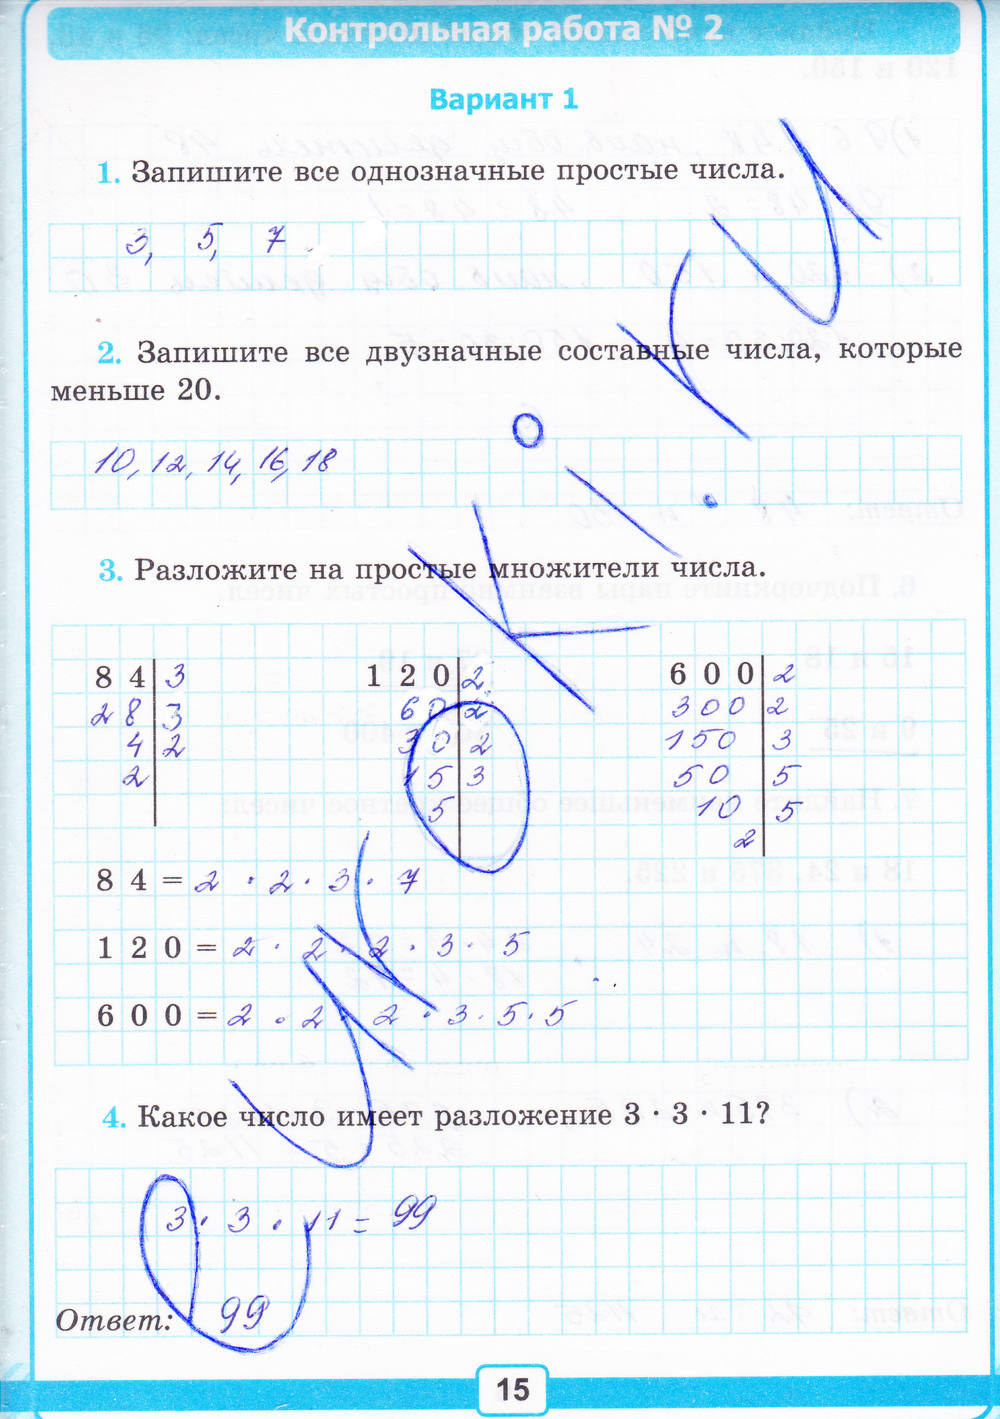 Контрольная работа № 2
Вариант 1
1. Запишите все однозначные простые числа.
3, 5, 7
2. Запишите все двузначные составные числа, которые
меньше 20.
10, 12, 14, 16, 18
3. Разложите на простые множители числа.
8 4 | 3 1 2 0 | 2 6 0 0 | 2
2 8 | 3 6 0 | 2 3 0 0 | 2
4 | 2 3 0 | 2 1 5 0 | 3
2 | 1 5 | 3 5 0 | 5
5 | 1 0 | 5
2 |
8 4 = 2 · 2 · 3 · 7
1 2 0 = 2 · 2 · 2 · 3 · 5
6 0 0 = 2 · 2 · 2 · 3 · 5 · 5
4. Какое число имеет разложение 3 · 3 · 11?
3 · 3 · 11 = 99
Ответ: 99
15